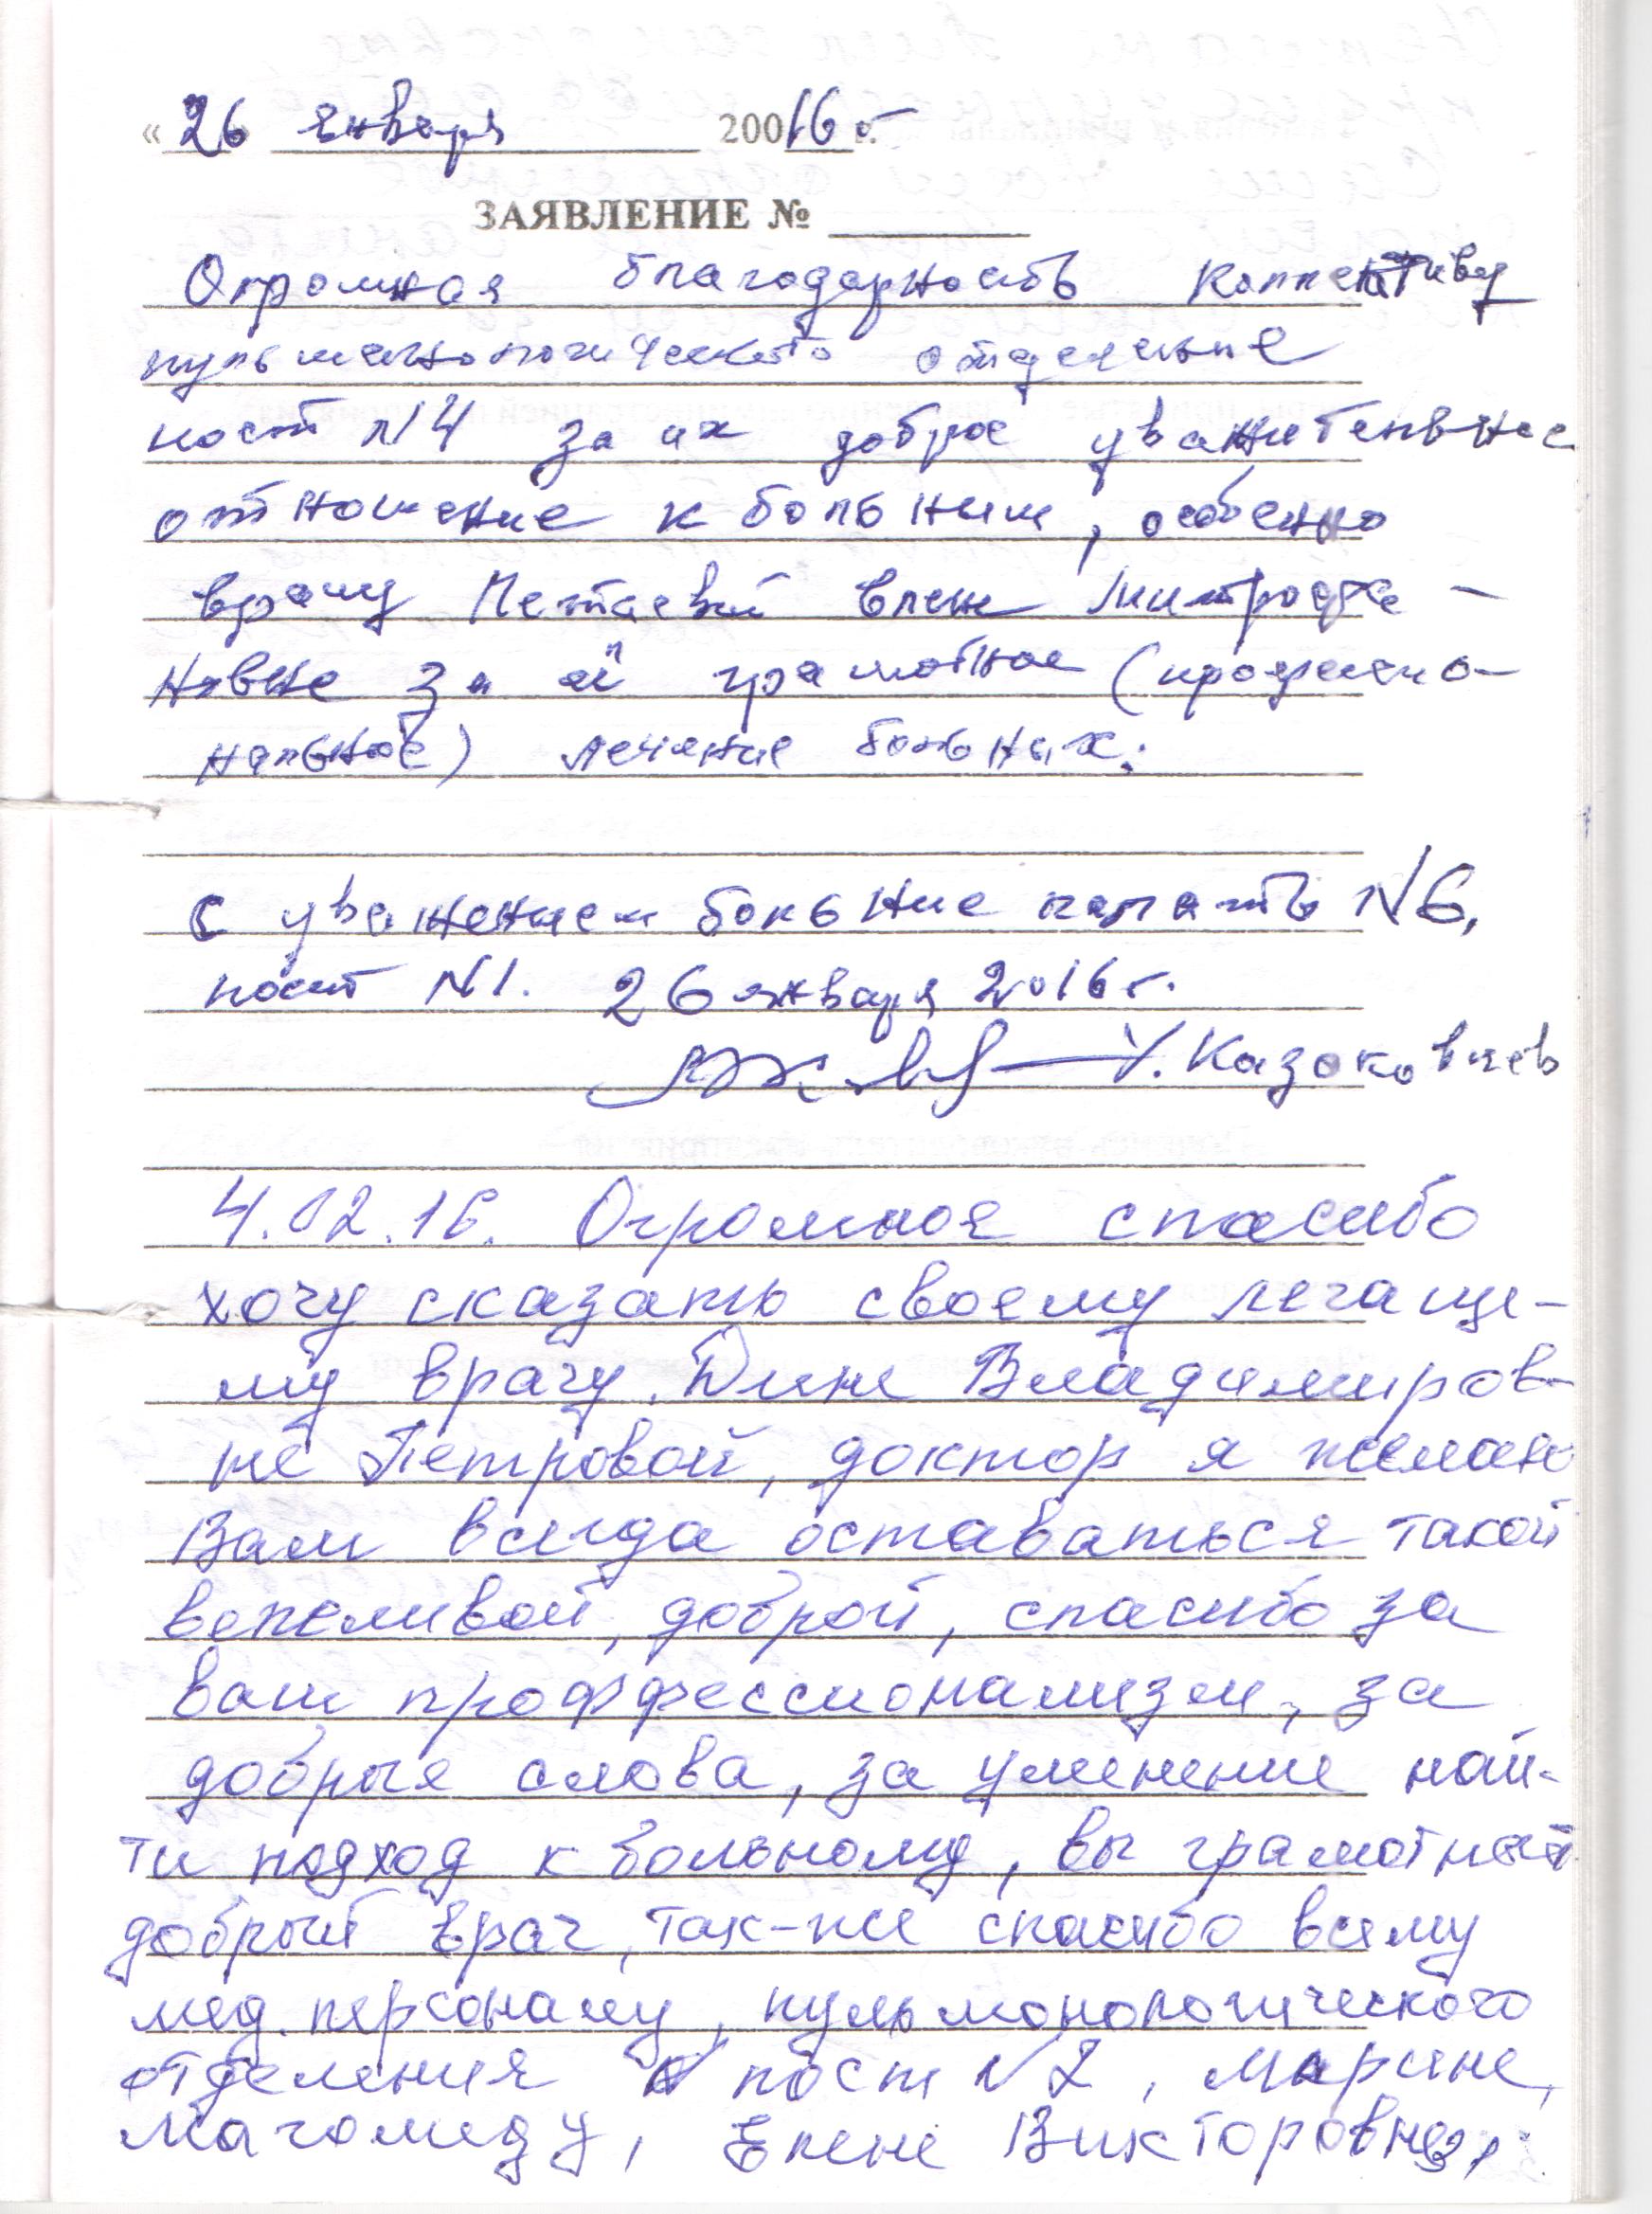 «26 января 20016 г.
ЗАЯВЛЕНИЕ №
Огромная благодарность коллективу
пульманологического отделение
пост №4 за их доброе уважительное
отношение к больным, особенно
врачу Елене
за её грамотное (профессио-
нальное) лечение больных.
С уважением больные палаты №6,
пост №1. 26 января 2016 г.
У. Казаковцев
4.02.16. Огромное спасибо
хочу сказать своему лечаще-
му врачу. Дине Владимиров-
не Петровой, доктор я желаю
Вам всегда оставаться такой
вежливой, доброй, спасибо за
ваш проффессионализм, за
добрые слова, за умение най-
ти подход к больному, вы грамотный
добрый врач, так-же спасибо всему
мед. персоналу, пульмонологического
отделения пост №2, Марине,
Магомеду, Елене Викторовне,